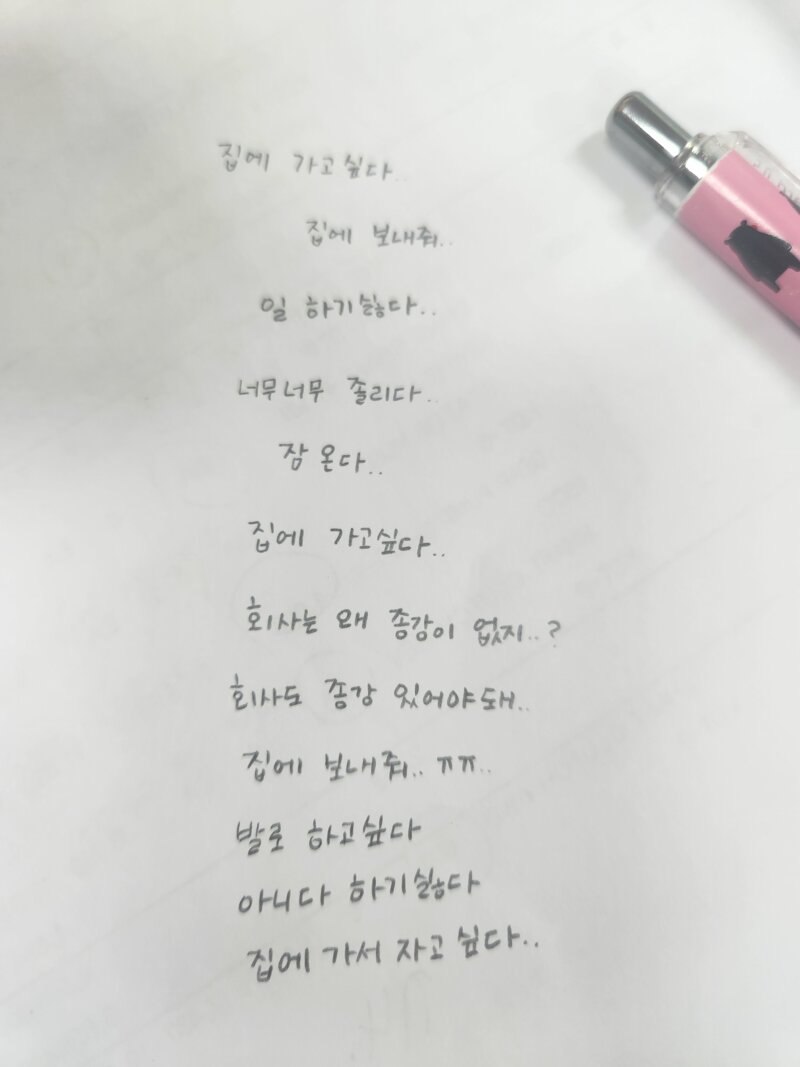 집에 가고싶다..
집에 보내줘..
일 하기싫다..
너무너무 졸리다..
잠 온다..
집에 가고싶다..
회사는 왜 종강이 없지..?
회사도 종강 있어야돼..
집에 보내줘.. ㅠㅠ..
발로 하고싶다
아니다 하기싫다
집에 가서 자고 싶다..